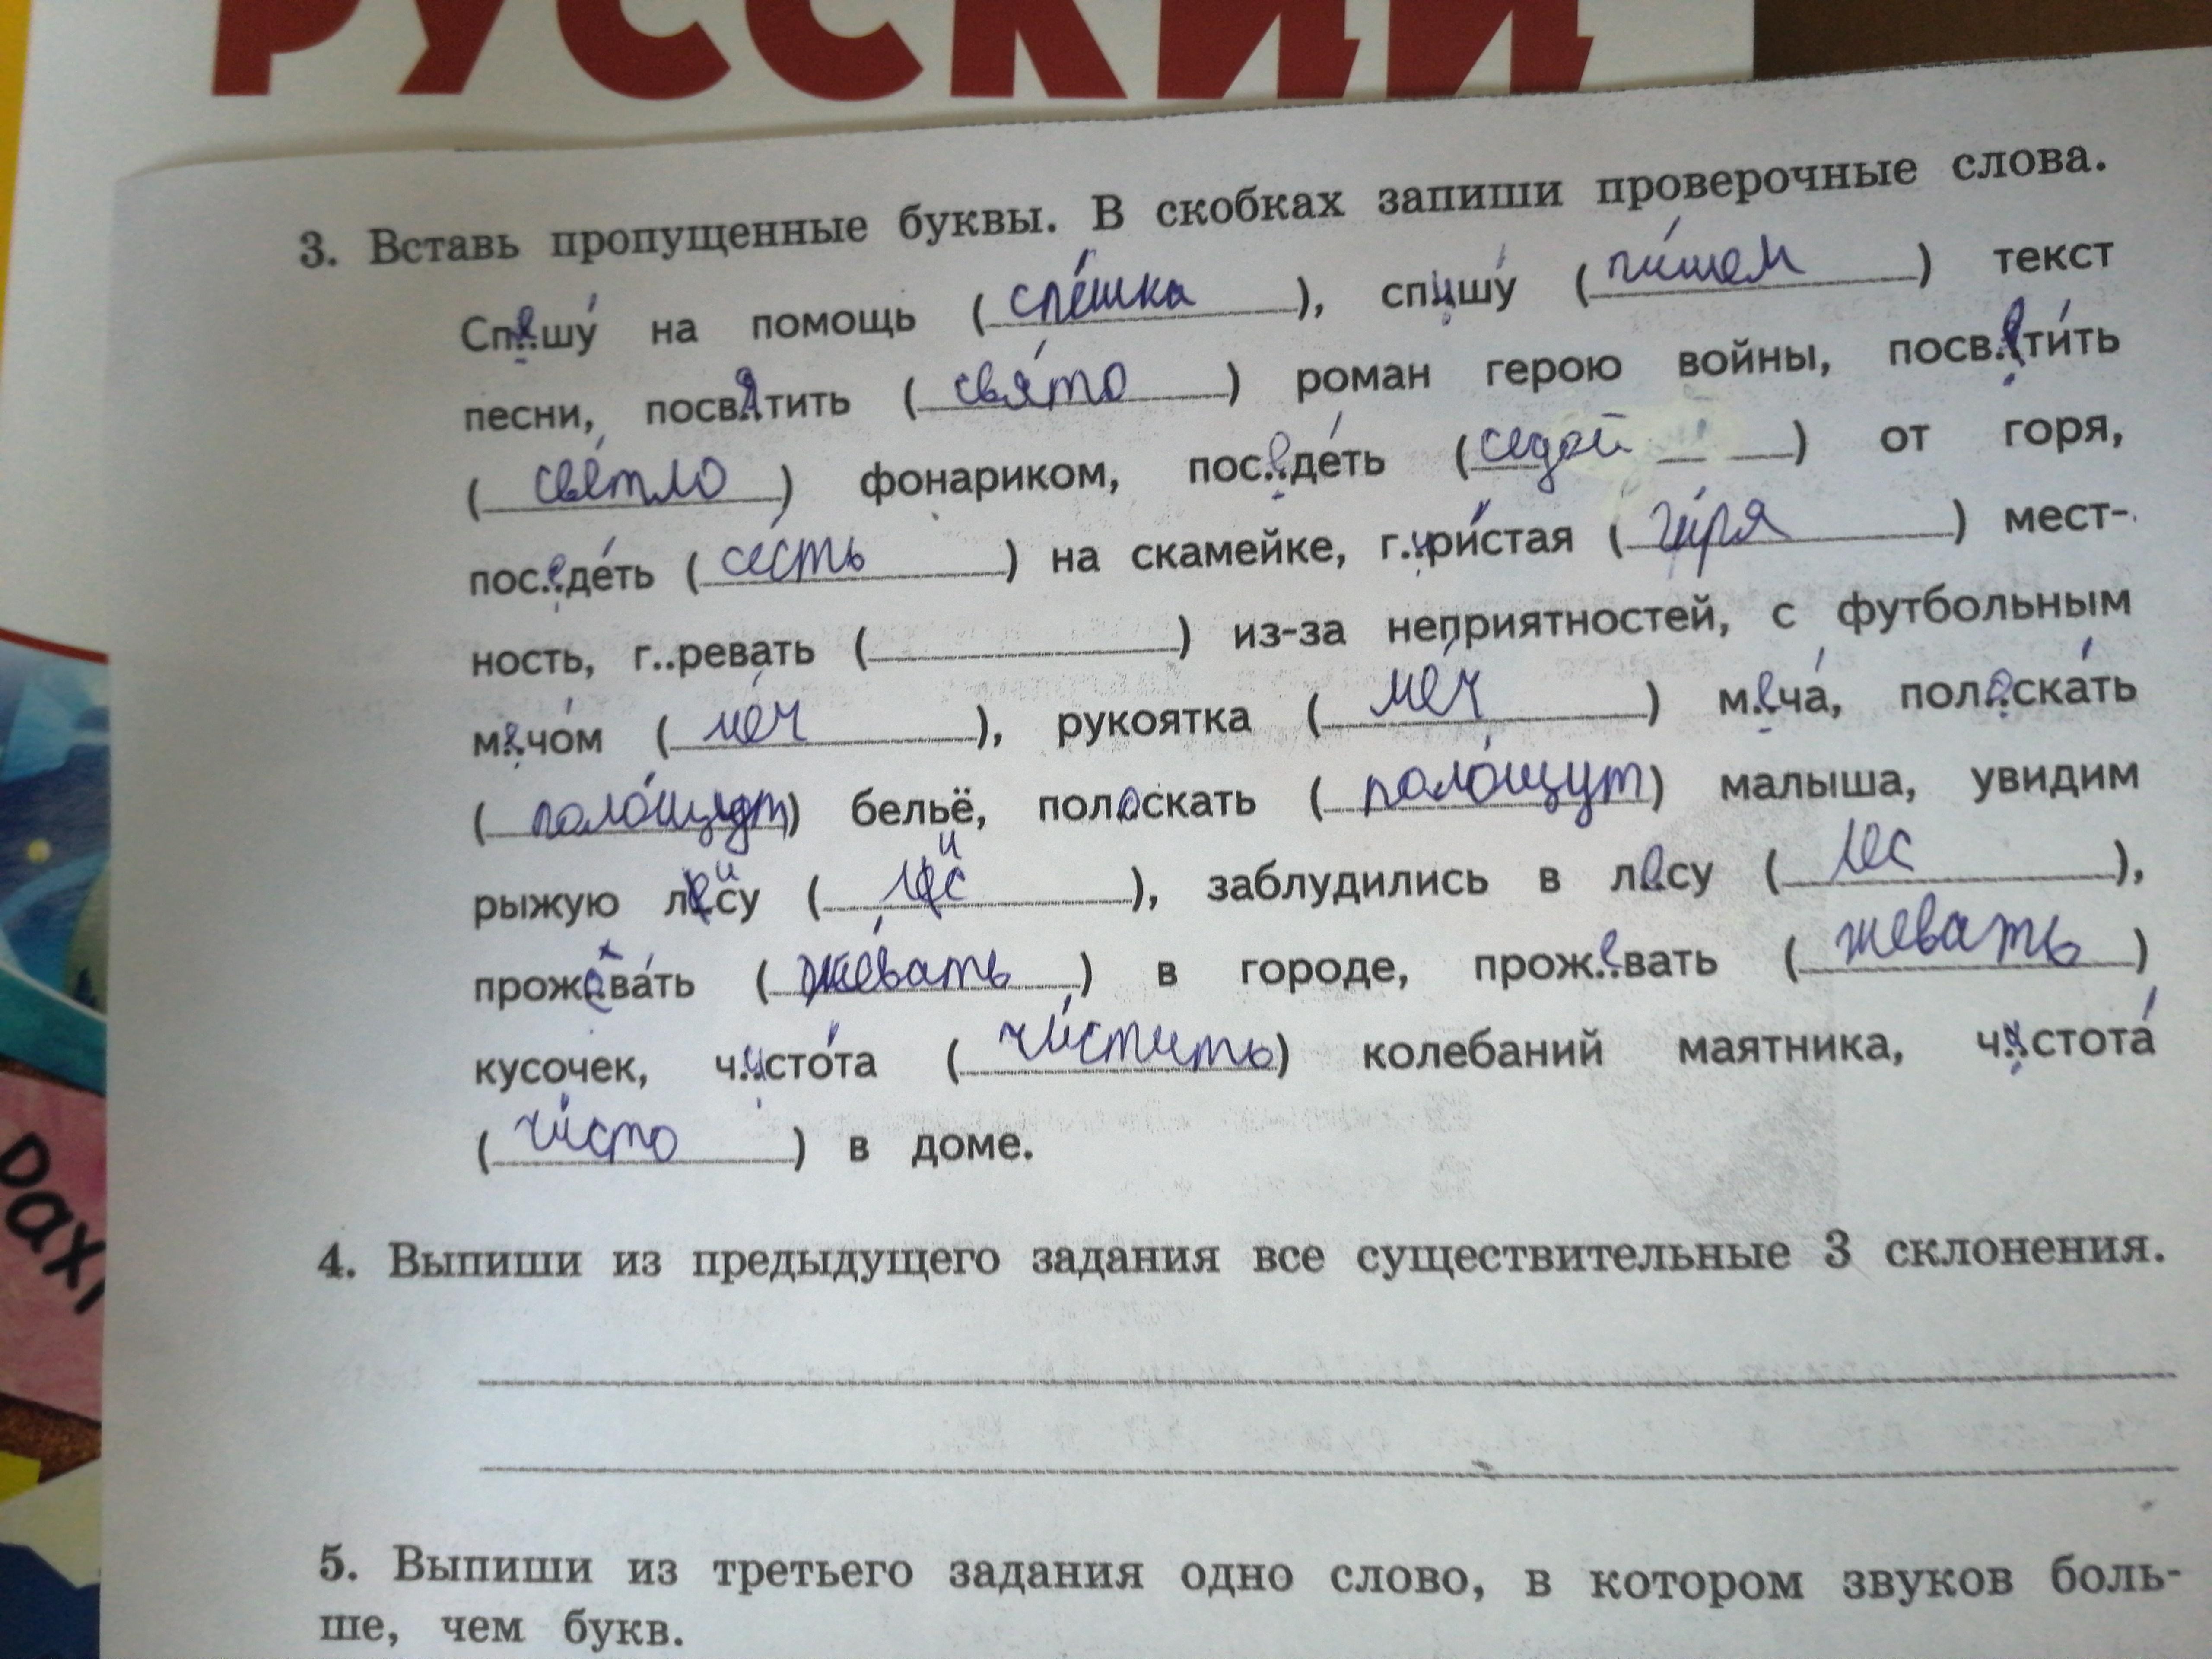 РУССКИЙ
3. Вставь пропущенные буквы. В скобках запиши проверочные слова.
Спешу́ на помощь (спе́шка), спишу́ (пи́шем) текст
песни, посвятить (свя́то) роман герою войны, посвети́ть
(све́тло) фонариком, поседе́ть (седой) от горя,
поседе́ть (се́сть) на скамейке, г..ри́стая (ги́ря) мест-
ность, г..ревать () из-за неприятностей, с футбольным
мечо́м (меч), рукоятка (ме́ч) меча́, полоска́ть
(поло́щут) бельё, полоскать (поло́щут) малыша, увидим
рыжую лису (лис), заблудились в лесу (лес),
прожева́ть (же́вать) в городе, прожевать (жевать)
кусочек, чисто́та (чи́стить) колебаний маятника, чистота́
(чи́сто) в доме.
4. Выпиши из предыдущего задания все существительные 3 склонения.
5. Выпиши из третьего задания одно слово, в котором звуков боль-
ше, чем букв.